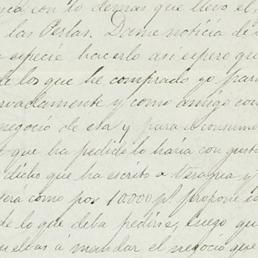 con lo demas que llevó el
las Perlas. Dame noticia de
especie hacerlo asi espero que
de los que he comprado yo para
privadamente y como amigo con
negocio de esta y para el consumo
que ha pedido lo haria con gusto
dicho que ha escrito a Veragua y
será como pos 10000 pf propone
de lo que deba pedirse, luego que
vueltas a mandar el negocio que